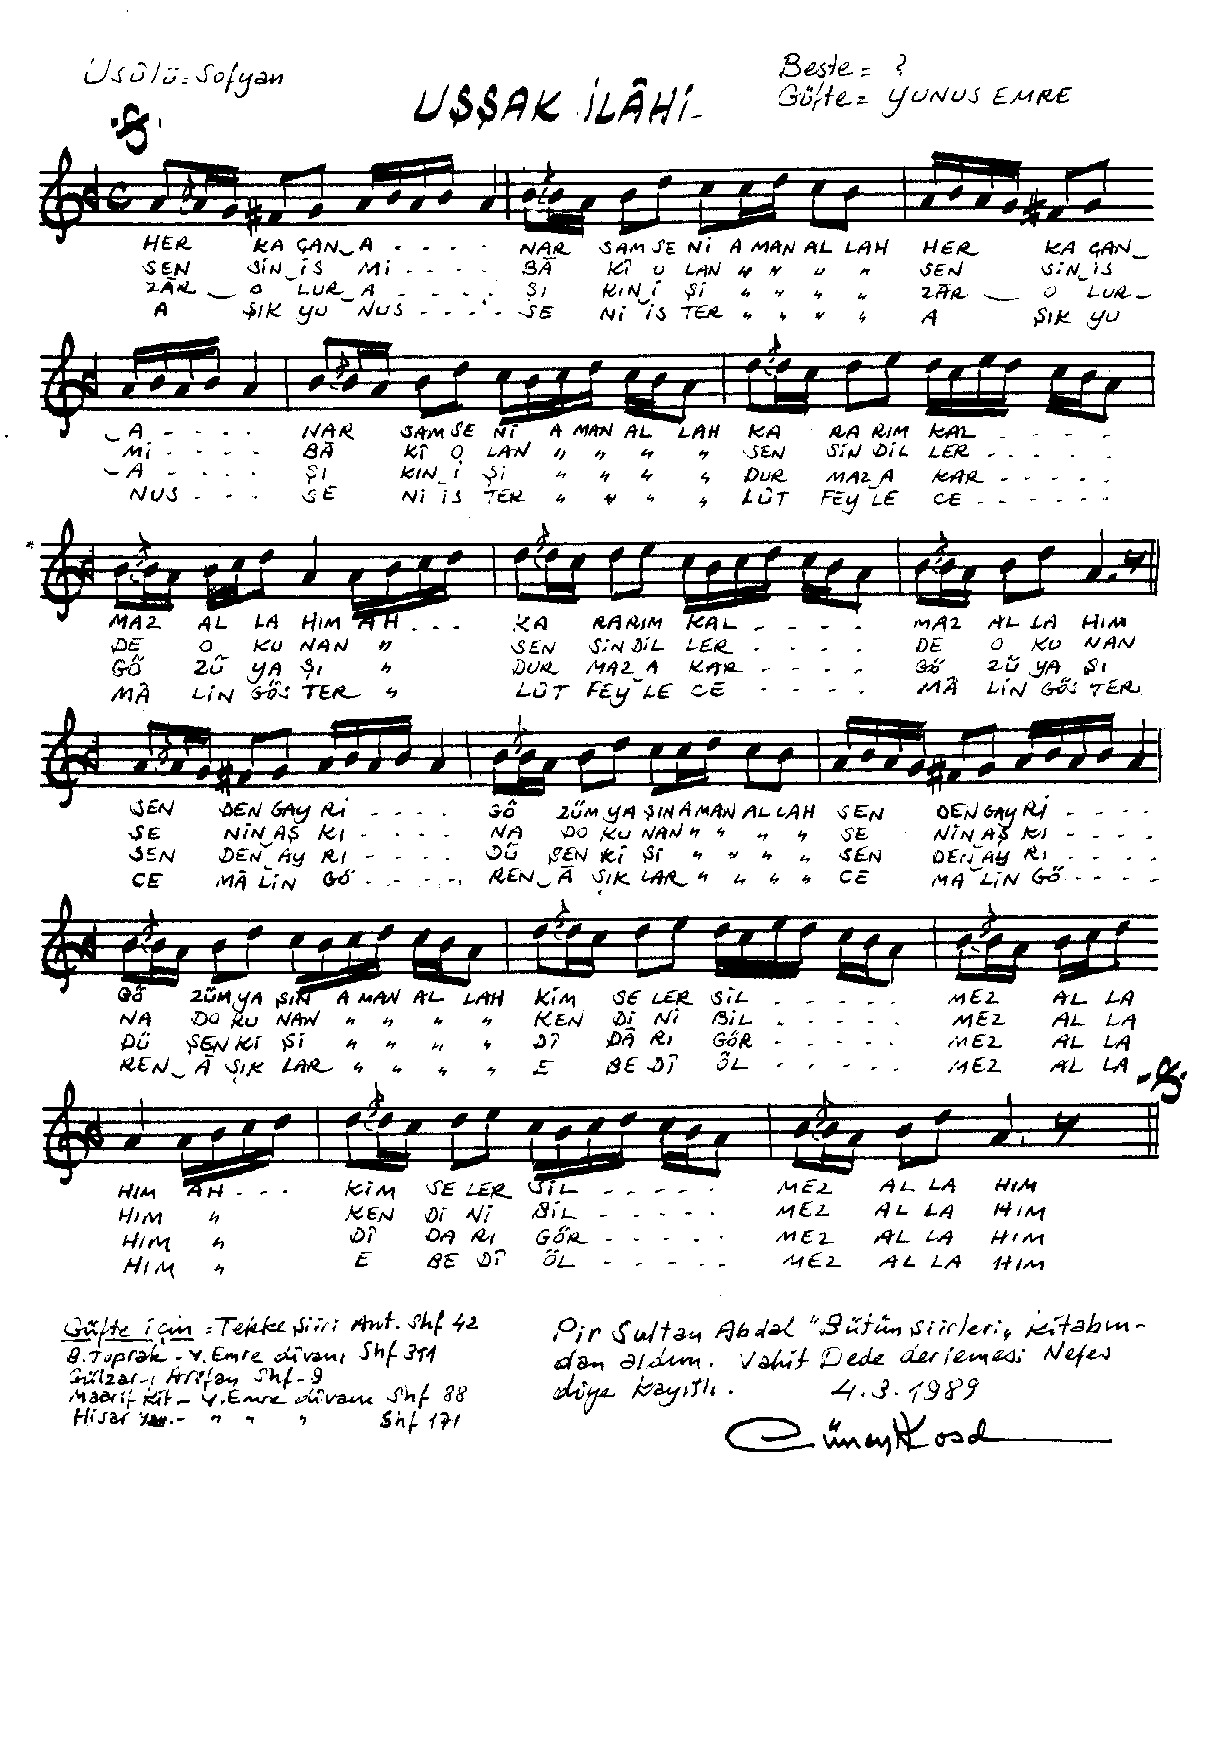 Usûlü = Sofyan
Beste = ?
UŞŞAK İLÂHİ
Güfte = YUNUS EMRE
HER KA ÇAN_A - - - - NAR SAM SE Nİ A MAN AL LAH HER KA ÇAN_
SEN SİN_İS Mİ - - - - BÂ KÎ O LAN " " " " SEN SİN_İS
ZÂR_ O LUR_A - - - - ŞI KIN_İ Şİ " " " " ZÂR_ O LUR_
A ŞIK YU NUS - - - - SE Nİ İS TER " " " " A ŞIK YU
_A - - - - NAR SAM SE Nİ A MAN AL LAH KA RA RIM KAL - - - - -
Mİ - - - - BÂ KÎ O LAN " " " " SEN SİN DİL LER - - - - -
_A - - - - ŞI KIN_İ Şİ " " " " DUR MAZ_A KAR - - - - -
NUS - - - SE Nİ İS TER " " " " LÛT FEY LE CE - - - - -
MAZ AL LA HIM AH - - - KA RARIM KAL - - - - - MAZ AL LA HIM
DE O KU NAN " SEN SİN DİL LER - - - - DE O KU NAN
GÖ ZÜ YA ŞI " DUR MAZ_A KAR - - - - GÖ ZÜ YA ŞI
MÂ LİN GÖS TER " LÛT FEY LE CE - - - - MÂ LİN GÖS TER
SEN DEN GAY RI - - - - GÖ ZÜM YA ŞIN A MAN AL LAH SEN DEN GAY RI - - - -
SE NİN_AŞ KI - - - - NA DO KU NAN " " " " SE NİN AŞ KI - - - -
SEN DEN_AY RI - - - - DÜ ŞEN Kİ Şİ " " " " SEN DEN_AY RI - - - -
CE MÂ LİN GÖ - - - - REN_Â ŞIK LAR " " " " CE MA LİN GÖ - - - -
GÖ ZÜM YA ŞIN A MAN AL LAH KİM SE LER SİL - - - - - MEZ AL LA
NA DO KU NAN " " " " KEN Dİ Nİ BİL - - - - - MEZ AL LA
DÜ ŞEN Kİ Şİ " " " " DÎ DÂ RI GÖR - - - - - MEZ AL LA
REN_Â ŞIK LAR " " " " E BE DÎ ÖL - - - - - MEZ AL LA
HIM AH - - - KİM SE LER SİL - - - - - MEZ AL LA HIM
HIM " KEN Dİ Nİ BİL - - - - - MEZ AL LA HIM
HIM " DÎ DA RI GÖR - - - - - MEZ AL LA HIM
HIM " E BE DÎ ÖL - - - - - MEZ AL LA HIM
Güfte için = Tekke Şiiri Ant. Shf 42
B. Toprak - Y. Emre divanı Shf 311
Gülzar-ı Arifan Shf - 9
Maarif Kit - Y. Emre divanı Shf 88
Hisar - " " " Shf 171
Pir Sultan Abdal "Bütün Şiirleri" kitabın-
dan aldım. Vahit Dede derlemesi Nefes
diye kayıtlı. 4.3.1989